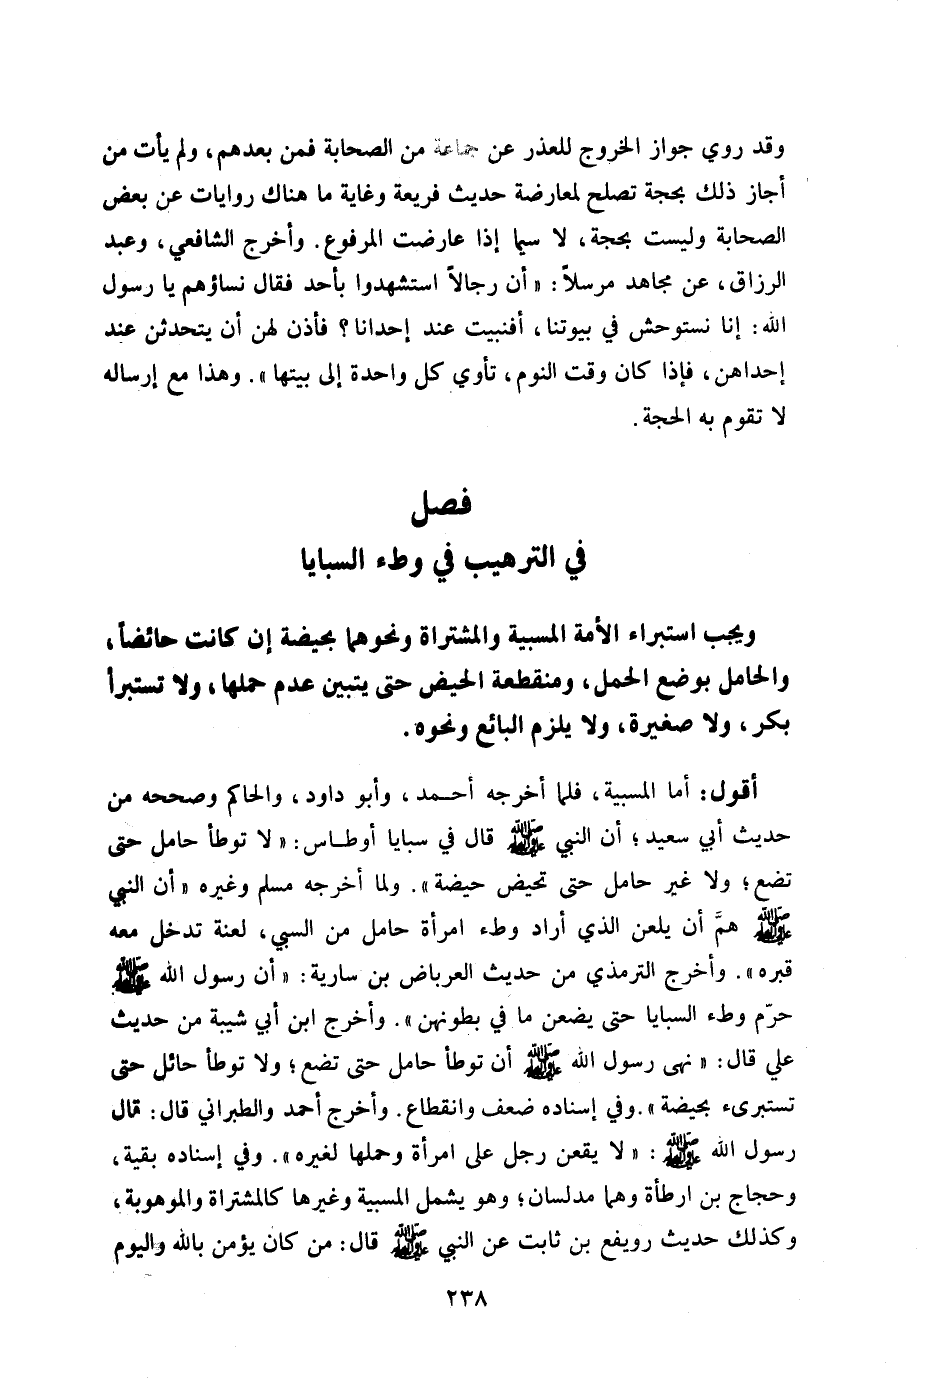 وقد روي جواز الخروج للعذر عن جماعة من الصحابة فمن بعدهم، ولم يأت من
أجاز ذلك بحجة تصلح لمعارضة حديث فريعة وغاية ما هناك روايات عن بعض
الصحابة وليست بحجة، لا سيما إذا عارضت المرفوع. وأخرج الشافعي، وعبد
الرزاق، عن مجاهد مرسلاً: «أن رجالاً استشهدوا بأحد فقال نساؤهم يا رسول
الله: إنا نستوحش في بيوتنا، أفنبيت عند إحدانا؟ فأذن لهن أن يتحدثن عند
إحداهن، فإذا كان وقت النوم، تأوي كل واحدة إلى بيتها». وهذا مع إرساله
لا تقوم به الحجة.
فصل
في الترهيب في وطء السبايا
ويجب استبراء الأمة المسبية والمشتراة ونحوهما بحيضة إن كانت حائضاً،
والحامل بوضع الحمل، ومنقطعة الحيض حتى يتبين عدم حملها، ولا تستبرأ
بكر، ولا صغيرة، ولا يلزم البائع ونحوه.
أقول: أما المسبية، فلما أخرجه أحـمد، وأبو داود، والحاكم وصححه من
حديث أبي سعيد؛ أن النبي ﷺ قال في سبايا أوطـاس: «لا توطأ حامل حتى
تضع؛ ولا غير حامل حتى تحيض حيضة». ولما أخرجه مسلم وغيره «أن النبي
ﷺ همَّ أن يلعن الذي أراد وطء امرأة حامل من السبي، لعنة تدخل معه
قبره». وأخرج الترمذي من حديث العرباض بن سارية: «أن رسول الله ﷺ
حرّم وطء السبايا حتى يضعن ما في بطونهن». وأخرج ابن أبي شيبة من حديث
علي قال: «نهى رسول الله ﷺ أن توطأ حامل حتى تضع؛ ولا توطأ حائل حتى
تستبرىء بحيضة».وفي إسناده ضعف وانقطاع. وأخرج أحمد والطبراني قال: قال
رسول الله ﷺ: «لا يقعن رجل على امرأة وحملها لغيره». وفي إسناده بقية،
وحجاج بن ارطأة وهما مدلسان؛ وهو يشمل المسبية وغيرها كالمشتراة والموهوبة،
وكذلك حديث رويفع بن ثابت عن النبي ﷺ قال: من كان يؤمن بالله واليوم
٢٣٨